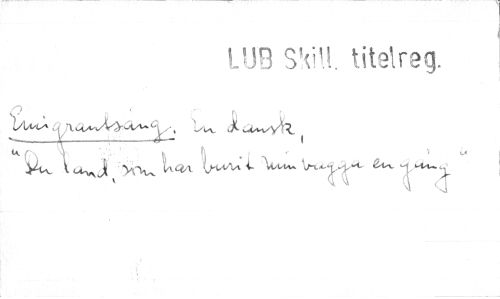 LUB Skill. titelreg.
Emigrantsång. En dansk,
"Du land, som har burit min vagga en gång"